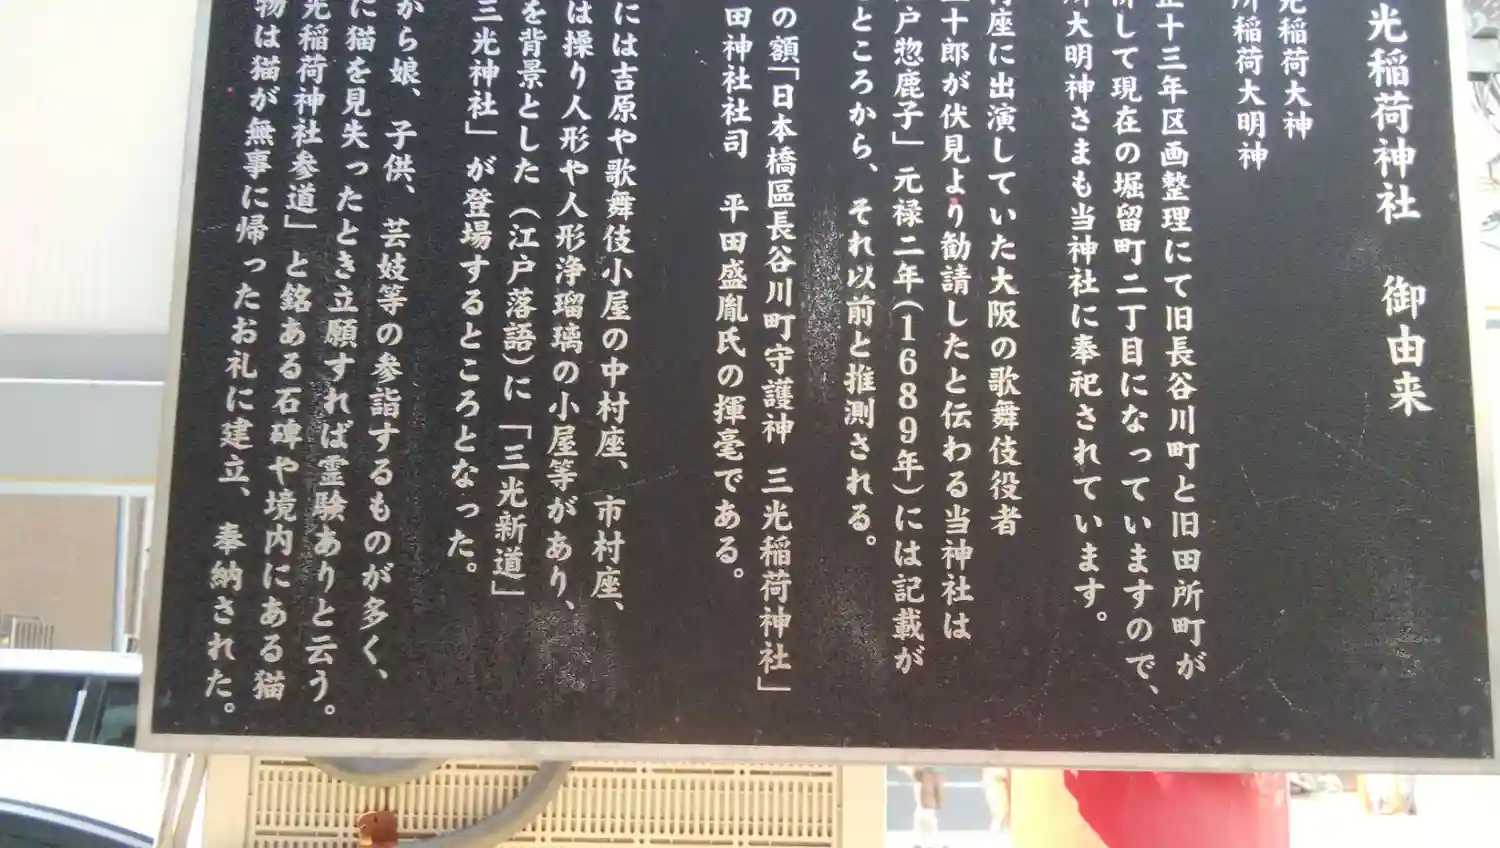 光稲荷神社 御由来
光稲荷大神
所稲荷大明神
正十三年区画整理にて旧長谷川町と旧田所町が
併して現在の堀留町二丁目になっていますので、
所大明神さまも当神社に奉祀されています。
村座に出演していた大阪の歌舞伎役者
十郎が伏見より勧請したと伝わる当神社は
戸惣鹿子」元禄二年(1689年)には記載が
ところから、それ以前と推測される。
の額「日本橋區長谷川町守護神 三光稲荷神社」
田神社社司 平田盛胤氏の揮毫である。
には吉原や歌舞伎小屋の中村座、市村座、
は操り人形や人形浄瑠璃の小屋等があり、
を背景とした(江戸落語)に「三光新道」
三光神社」が登場するところとなった。
から娘、子供、芸妓等の参詣するものが多く、
に猫を見失ったとき立願すれば霊験ありと云う。
光稲荷神社参道」と銘ある石碑や境内にある猫
物は猫が無事に帰ったお礼に建立、奉納された。